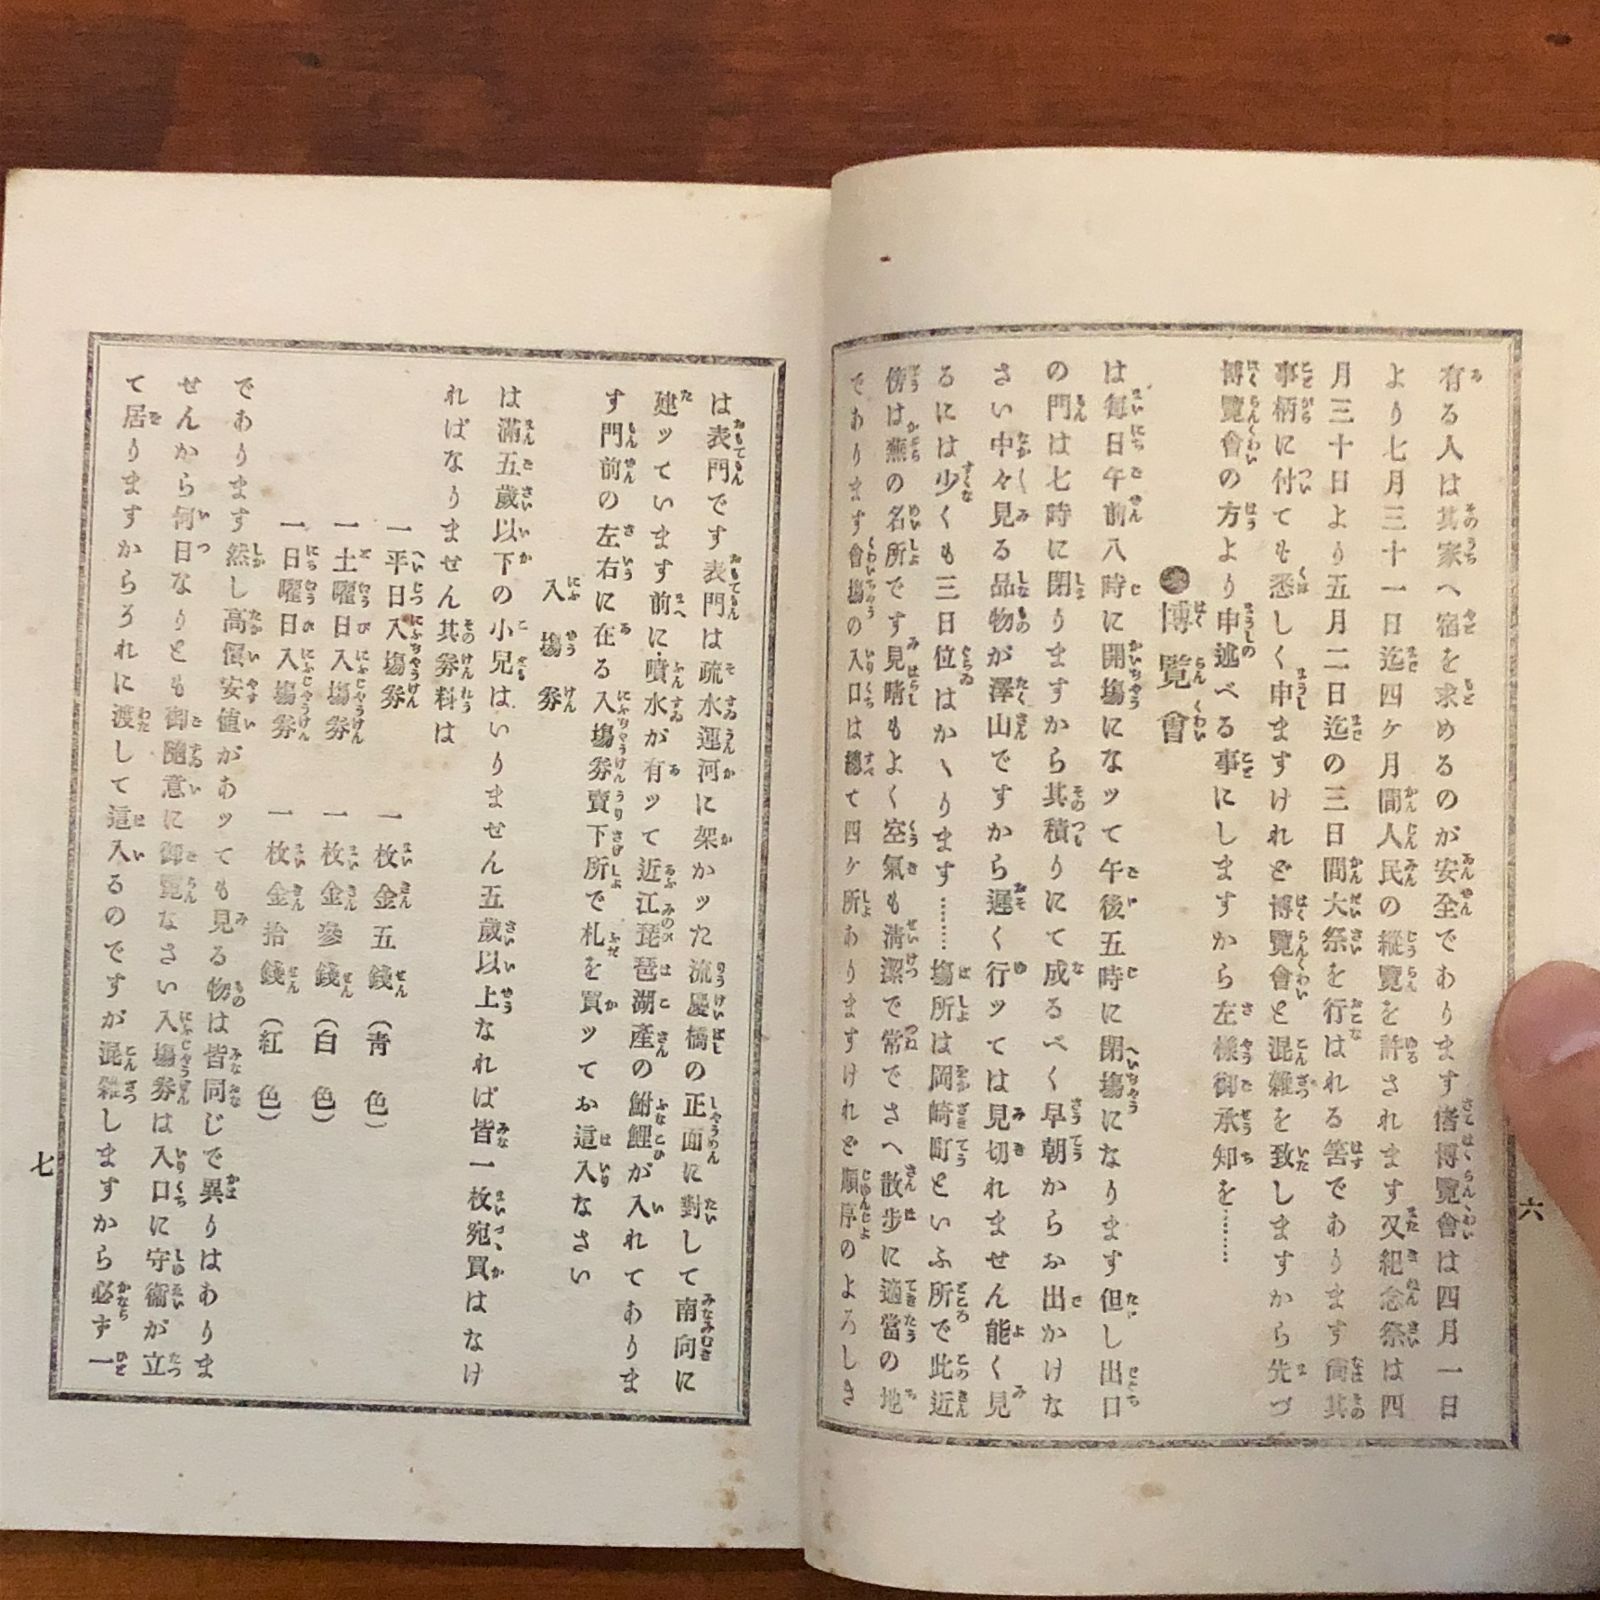 有る人は其家へ宿を求めるのが安全であります偖博覽會は四月一日
より七月三十一日迄四ヶ月間人民の縱覽を許されます又紀念祭は四
月三十日より五月二日迄の三日間大祭を行はれる筈であります尚其
事柄に付ても悉しく申ますけれど博覽會と混雜を致しますから先づ
博覽會の方より申述べる事にしますから左樣御承知を………
博覽會
は每日午前八時に開塲になッて午後五時に閉塲になります但し出口
の門は七時に閉りますから其積りにて成るべく早朝からお出かけな
さい中々見る品物が澤山ですから遲く行ッては見切れません能く見
るには少くも三日位はかゝります………塲所は岡崎町といふ所で此近
傍は蕪の名所です見晴もよく空氣も淸潔で常でさへ散步に適當の地
であります會塲の入口は總て四ヶ所ありますけれど順序のよろしき
六
は表門です表門は疏水運河に架かッた流慶橋の正面に對して南向に
建ッています前に噴水が有ッて近江琵琶湖產の鮒鯉が入れてありま
す門前の左右に在る入塲劵賣下所で札を買ッてお這入なさい
入塲劵
は滿五歲以下の小兒はいりません五歲以上なれば皆一枚宛買はなけ
ればなりません其劵料は
一平日入塲劵 一枚金五錢（靑色）
一土曜日入塲劵 一枚金參錢（白色）
一日曜日入塲劵 一枚金拾錢（紅色）
であります然し高價安値があッても見る物は皆同じで異りはありま
せんから何日なりとも御隨意に御覽なさい入塲劵は入口に守衞が立
て居りますからろれに渡して這入るのですが混雜しますから必ず一
七